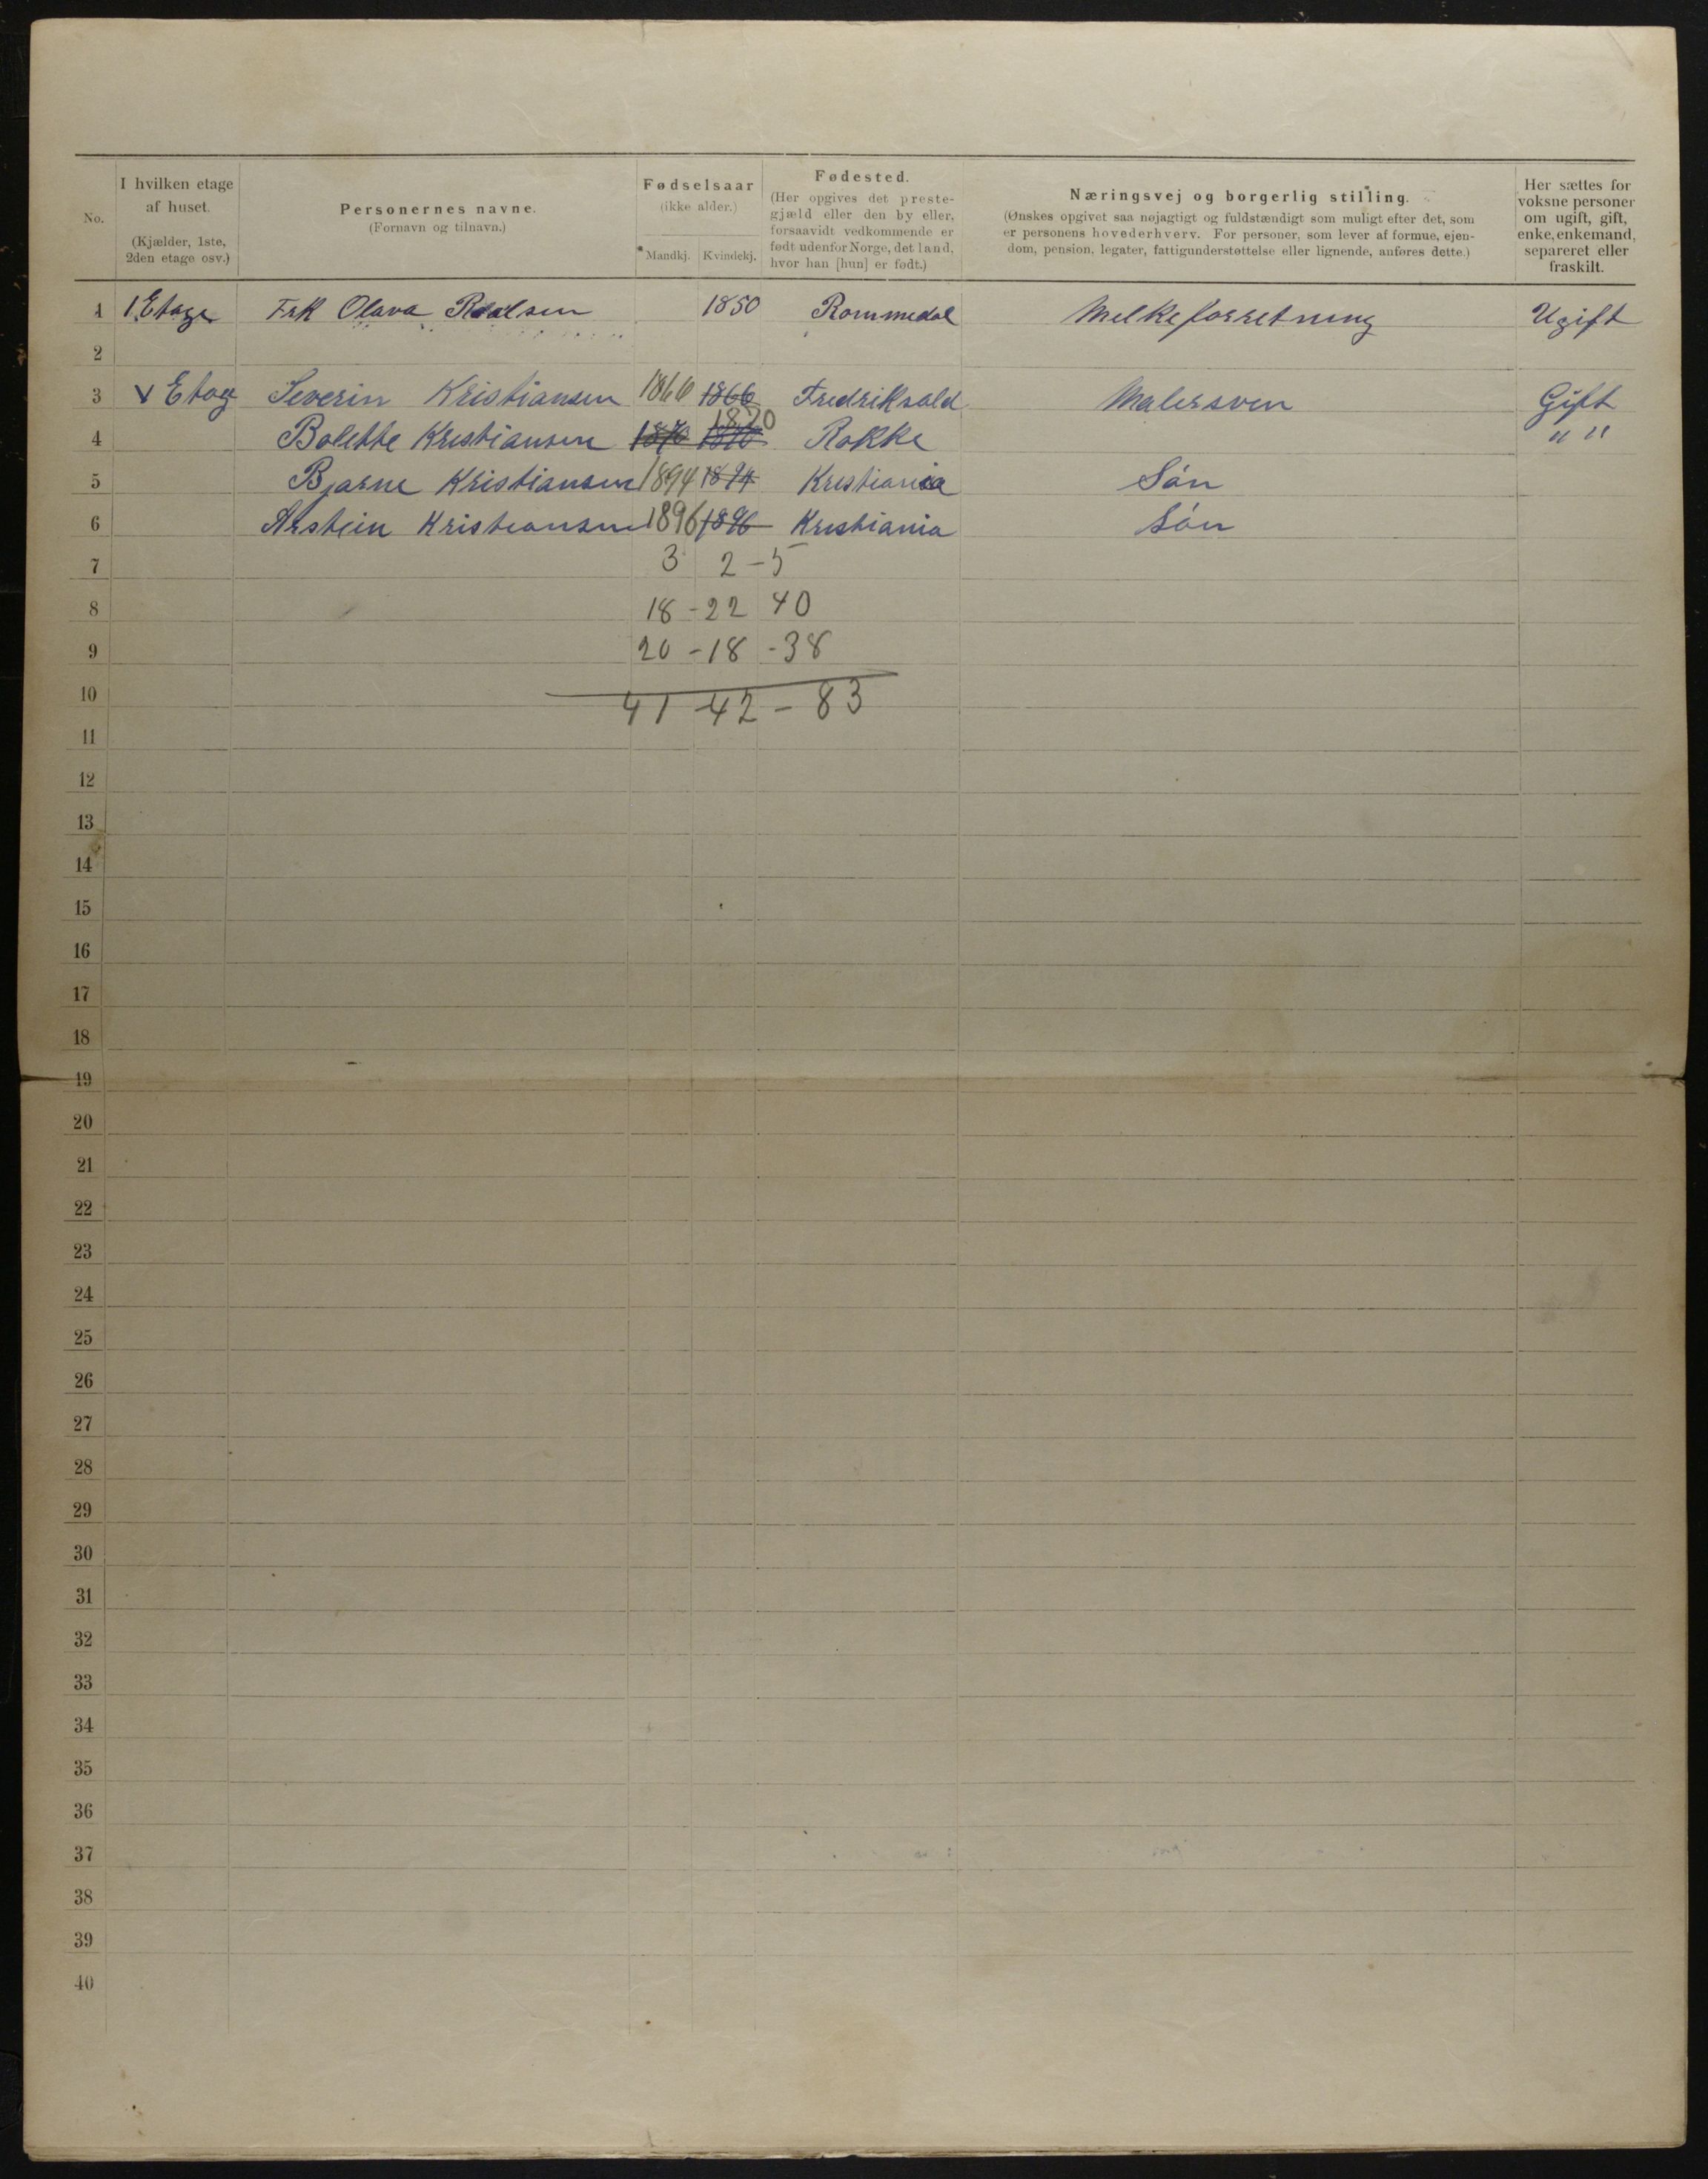 No.
I hvilken etage
af huset.
(Kjælder, 1ste,
2den etage osv.)
Personernes navne.
(Fornavn og tilnavn.)
Fødselsaar
(ikke alder.)
Mandkj. Kvindekj.
Fødested.
(Her opgives det preste-
gjæld eller den by eller,
forsaavidt vedkommende er
født udenfor Norge, det land,
hvor han [hun] er født.)
Næringsvej og borgerlig stilling.
(Ønskes opgivet saa nøjagtigt og fuldstændigt som muligt efter det, som
er personens hovederhverv. For personer, som lever af formue, ejen-
dom, pension, legater, fattigunderstøttelse eller lignende, anføres dette.)
Her sættes for
voksne personer
om ugift, gift,
enke, enkemand,
separeret eller
fraskilt.
1 1 Etage Frk Olava 1850 Rommedal Melkeforretning Ugift
2
3 V Etag Severin Kristiansen 1866 1866 Fredriksald Malersven Gift
4 Bolette Kristiansen 1870 1870 1870 Rokke " "
5 Bjarne Kristiansen 1894 1894 Kristiania Søn
6 Arstein Kristiansen 1896 1896 Kristiania Søn
7 3 2 - 5
8 18 - 22 40
9 20 - 18 - 38
10 41 - 42 - 83
11
12
13
14
15
16
17
18
19
20
21
22
23
24
25
26
27
28
29
30
31
32
33
34
35
36
37
38
39
40